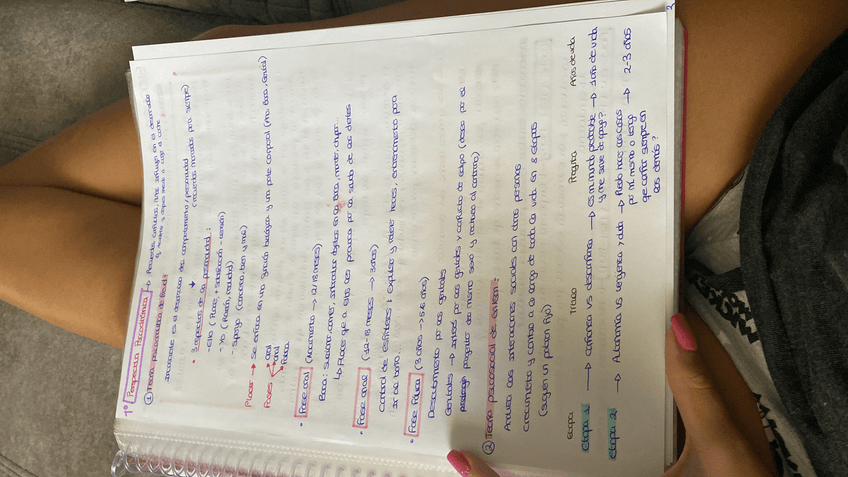 1º Perspectiva Psicodinámica → Recuerdos, conflictos,
influyen en el desarrollo
① Teoría psicoanalítica de Freud:
inconsciente es el desarrollo del comportamiento/personalidad
(recuerdos marcados para siempre)
• 3 aspectos de la personalidad:
- Ello (Placer, + satisfacción - tensión)
- Yo (Razón, realidad)
- SuperYo (conciencia, bien y mal)
Placer → Se enfoca en una función biológica y una parte corporal (Ano, Boca, Genital)
Fases → oral
anal
fálica
• Fase oral (Nacimiento → 12/18 meses)
Boca: succionar, comer, introducir objetos en la boca, morder, chupar...
↳ Placer que a veces
por la salida de los dientes
• Fase anal (12-18 meses → 3 años)
Control de esfínteres: expulsar y retener heces, entrenamiento para
ir al baño...
• Fase Fálica (3 años → 5 o 6 años)
Descubrimiento por los genitales
Genitales → interés por los genitales y conflicto de edipo (deseo por el
progenitor del mismo sexo y rechazo al contrario)
② Teoría psicosocial de Erikson:
Analiza las interacciones sociales con otras personas
Crecimiento y cambio a lo largo de toda la vida en 8 etapas
(siguen un patrón fijo)
Etapa Título Pregunta Años de vida
Etapa 1 → confianza vs desconfianza → Es mi mundo predecible → 1 año de vida
y me sirve de apoyo?
Etapa 2 → Autonomía vs vergüenza y duda → Puedo hacer las cosas → 2-3 años
por mí mismo o tengo
que confiar siempre en
los demás?
2